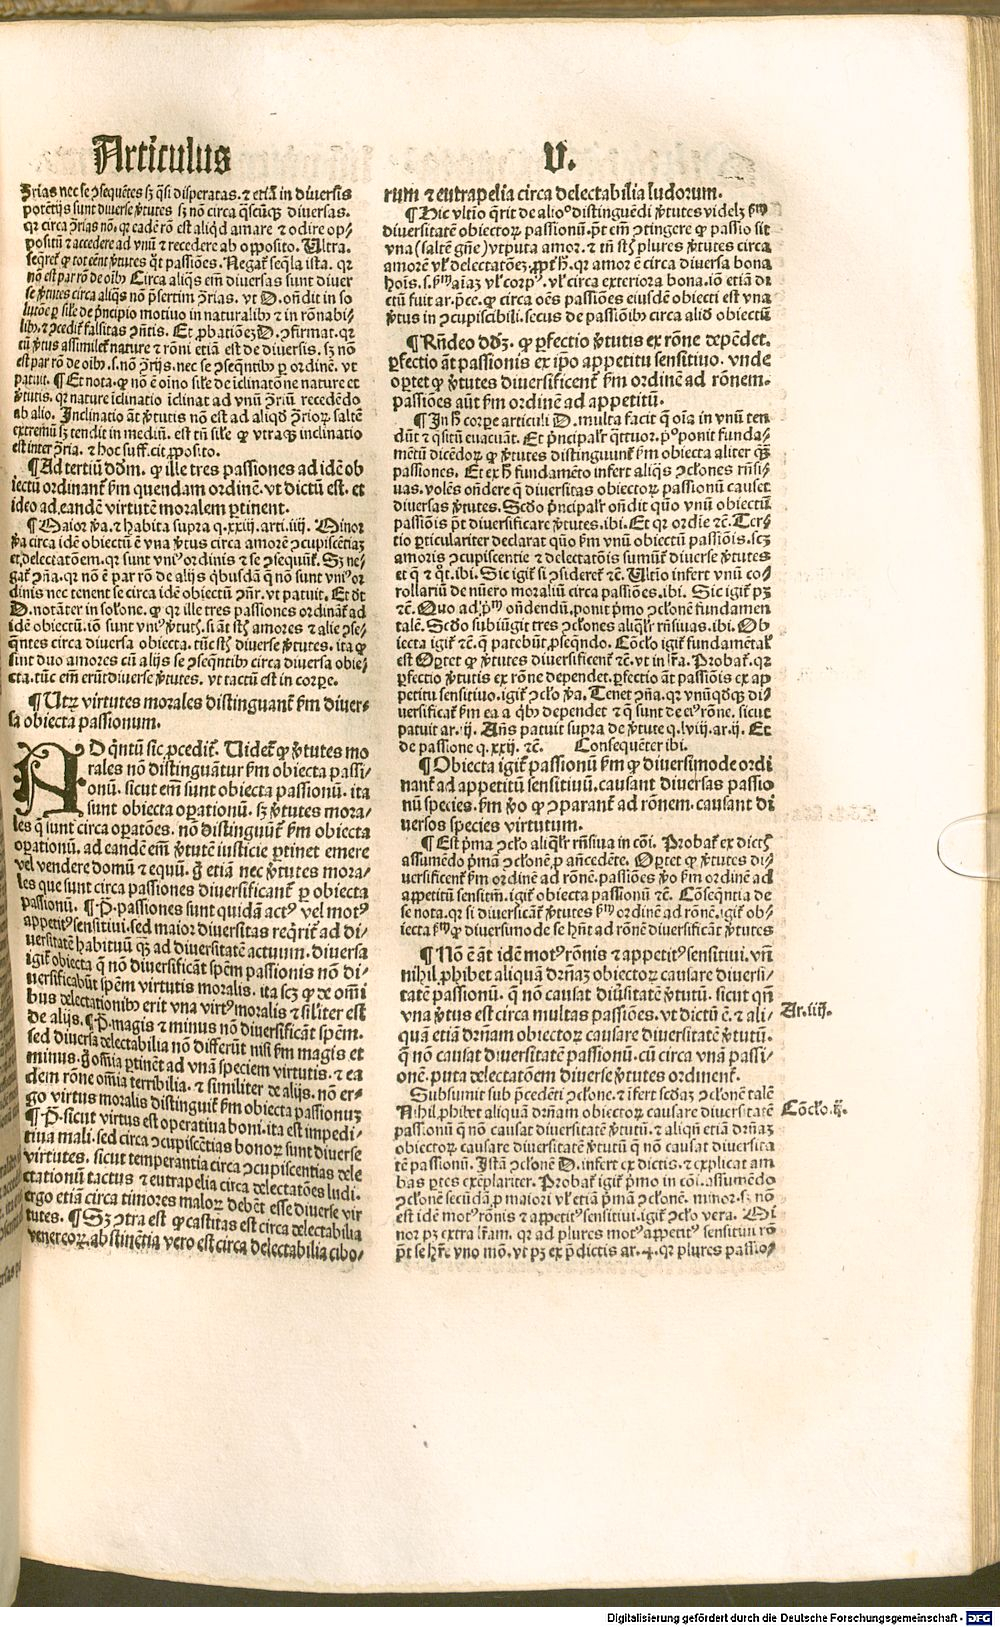 Articulus
V.
ꝯ̃rias nec se ꝯsequẽtes sꝫ q̃si disperatas. ⁊ etiã in diversis
potẽtijs sunt diverse ꝟtutes sꝫ nõ circa q̃scũqꝫ diversas.
qꝛ circa ꝯ̃rias nõ. qꝛ eadẽ rõ est aliqd̃ amare ⁊ odire op⸗
positũ ⁊ accedere ad vnũ ⁊ recedere ab opposito. Ultra.
nõ est par rõ de oibꝰ Circa aliqs em̃ diversas sunt diver
se ꝟtutes circa aliqs nõ p̃sertim ꝯ̃rias. vt D. oñdit in so
lutõe ꝑ sile de p̃ncipio motivo in naturalibꝰ ⁊ in rõnabi⸗
cũ ꝟtus assimilet̃ nature ⁊ rõni etiã est de diversis. sꝫ nõ
est par rõ de oibꝰ. s. nõ ꝯ̃rijs. nec se ꝯseq̃ntibꝰ ꝑ ordinẽ. vt
patuit. ¶ Et nota. ꝙ nõ ẽ oino sile de ĩclinatõne nature et
ꝟtutis. qꝛ nature ĩclinatio ĩclinat ad vnũ ꝯ̃riũ recedẽdo
ab alio. Inclinatio aũt ꝟtutis nõ est ad aliqd̃ ꝯ̃rioꝝ saltẽ
extremũ sꝫ tendit in mediũ. est tñ sile ꝙ vtraqꝫ inclinatio
est inter ꝯ̃ria. ⁊ hoc suff.cit ꝓposito.
¶ Ad tertiũ dd̃m. ꝙ ille tres passiones ad idẽ ob
iectũ ordinant̃ ẜm quendam ordinẽ. vt dictũ est. et
ideo ad eandẽ virtutẽ moralem ꝑtinent.
¶ Maior ꝟa. ⁊ habita supra q. xxiij. arti. iiij. Minor
ꝟa circa idẽ obiectũ ẽ vna ꝟtus circa amorẽ ꝯcupiscẽtiaꝫ
et delectatõem. qꝛ sunt vniꝰ ordinis ⁊ se ꝯsequũt̃. Sꝫ ne⸗
gat̃ ꝯña. qꝛ nõ ẽ par rõ de alijs qbusdã q̃ nõ sunt vniꝰ or
dinis nec tenent se circa idẽ obiectũ ꝯñr. vt patuit. Et d̃t
D. notãter in solone. ꝙ qꝛ ille tres passiones ordinãt̃ ad
q̃ntes circa diversa obiecta. tũc sꝉ̃ diverse ꝟtutes. ita ꝙ
sint duo amores cũ alijs se ꝯseq̃ntibꝰ circa diversa obie⸗
cta. tũc em̃ erũt diverse ꝟtutes. vt tactũ est in corꝑe.
¶ Utꝝ virtutes morales distinguant̃ ẜm diver⸗
sa obiecta passionum.
AD q̃ntũ sic ꝓcedit̃. Uidet̃ ꝙ ꝟtutes mo
rales nõ distinguãtur ẜm obiecta passi⸗
onũ. sicut em̃ sunt obiecta passionũ. ita
sunt obiecta operationũ. sꝫ ꝟtutes mora⸗
les q̃ sunt circa oꝑatões. nõ distinguũt̃ ẜm obiecta
oꝑationũ. ad eandẽ em̃ ꝟtutẽ iusticie ꝑtinet emere
vel vendere domũ ⁊ equũ. g̃ etiã nec ꝟtutes mora⸗
les que sunt circa passiones diversificant̃ ꝑ obiecta
passionũ. ¶ P̃. passiones sunt quidã actꝰ vel motꝰ
appetitꝰ sensitivi. sed maior diversitas req̃rit̃ ad di⸗
versitatẽ habituũ q̃ꝫ ad diversitatẽ actuum. diversa
igit̃ obiecta q̃ nõ diversificãt spẽm passionis nõ di⸗
versificabũt spẽm virtutis moralis. ita scꝫ ꝙ de om̃i
bus delectationibꝰ erit vna virtꝰ moralis ⁊ siliter est
de alijs. ¶ P̃. magis ⁊ minus nõ diversificãt spẽm.
sed diversa delectabilia nõ differũt nisi ẜm magis et
minus. g̃ om̃ia ꝑtinẽt ad vnã speciem virtutis. ⁊ ea
dem rõne om̃ia terribilia. ⁊ similiter de alijs. nõ er⸗
go virtus moralis distinguit̃ ẜm obiecta passionuꝫ
¶ P̃. sicut virtus est operativa boni. ita est impedi⸗
tiva mali. sed circa ꝯcupiscẽtias bonoꝝ sunt diverse
virtutes. sicut temperantia circa ꝯcupiscentias dele
ctationũ tactus ⁊ eutrapelia circa delectatões ludi.
ergo etiã circa timores maloꝝ debẽt esse diverse vir
tutes. ¶ Sꝫ ꝯtra est ꝙ castitas est circa delectabilia
venereoꝝ. abstinẽtia vero est circa delectabilia cibo⸗
rum ⁊ eutrapelia circa delectabilia ludorum.
¶ Hic vltio q̃rit de alioꝰ distinguẽdi ꝟtutes videlꝫ ẜm
diversitatẽ obiectoꝝ passionũ. p̃t em̃ ꝯtingere ꝙ passio sit
vna (saltẽ gñe) vtputa amor. ⁊ tñ sꝉ̃ plures ꝟtutes circa
ctũ fuit ar. p̃ce. ꝙ circa oẽs passiões eiusdẽ obiecti est vna
ꝟtus in ꝯcupiscibili. secus de passiõibꝰ circa aliđ obiectũ
¶ Rñdeo dd̃ꝫ. ꝙ ꝑfectio ꝟtutis ex rõne depẽdet.
ꝑfectio aũt passionis ex ip̃o appetitu sensitivo. vnde
oꝑtet ꝙ ꝟtutes diversificent̃ ẜm ordinẽ ad rõnem.
passiões aũt ẜm ordinẽ ad appetitũ.
¶ In h̃ corꝑe articuli D. multa facit q̃ oĩa in vnũ ten
dũt ⁊ q̃sitũ euacuãt. Et p̃ncipalr̃ q̃ttuor. pͦ ponit funda⸗
mẽtũ dicẽdoꝝ ꝙ ꝟtutes distinguunt̃ ẜm obiecta aliter q̃ꝫ
passiones. Et ex h̃ fundamẽto infert aliqs ꝯclones rñsi⸗
uas. volẽs oñdere q̃ diversitas obiectoꝝ passionũ causet
diversas ꝟtutes. Scd̃o p̃ncipalr̃ oñdit quo vnũ obiectũ
passiõis p̃t diversificare ꝟtutes. ibi. Et qꝛ ordie ⁊c̃. Ter⸗
tio ꝑticulariter declarat quo ẜm vnũ obiectũ passiõis. scꝫ
amoris ꝯcupiscentie ⁊ delectatõis sumũt̃ diverse ꝟtutes
et q̃ ⁊ q̃t. ibi. Sic igit̃ si ꝯsideret̃ ⁊c̃. Ultio infert vnũ co⸗
rollariũ de nũero moraliũ circa passiões. ibi. Sic igit̃ pꝫ
⁊c̃. Quo ad p̃m oñdendũ. ponit p̃mo ꝯclonẽ fundamen
talẽ. Scd̃o subiũgit tres ꝯclones aliqlr̃ rñsiuas. ibi. Ob
iecta igit̃ ⁊c̃. q̃ patebũt ꝓseq̃ndo. Cõclo igit̃ fundamẽtal̃
est Oꝑtet ꝙ ꝟtutes diversificent̃ ⁊c̃. vt in lr̃a. Probat̃. qꝛ
ꝑfectio ꝟtutis ex rõne dependet. ꝑfectio aũt passiõis ex ap
petitu sensitivo. igit̃ ꝯclo ꝟa. Tenet ꝯña. qꝛ vnũqdqꝫ di⸗
versificat̃ ẜm ea a qbꝰ dependet ⁊ q̃ sunt de eiꝰ rõne. sicut
patuit ar. ij. Añs patuit supra de ꝟtute q. lviij. ar. ij. Et
de passione q. xxij. ⁊c̃. Consequẽter ibi.
¶ Obiecta igit̃ passionũ ẜm ꝙ diversimode ordi
nant̃ ad appetitũ sensitivũ. causant diversas passio
nũ species. ẜm ꝟo ꝙ ꝯparant̃ ad rõnem. causant di
versos species virtutum.
¶ Est p̃ma ꝯclo aliqlr̃ rñsiua in cõi. Probat̃ ex dictꝭ
assumẽdo p̃mã ꝯclonẽ ꝓ añcedẽte. Oꝑtet ꝙ ꝟtutes di⸗
versificent̃ ẜm ordinẽ ad rõnẽ. passiões ꝟo ẜm ordinẽ ad
appetitũ sensitiũ. igit̃ obiecta passionũ ⁊c̃. Cõseq̃ntia de
se nota. qꝛ si diversicãt̃ ꝟtutes ẜm ordinẽ ad rõnẽ. igit̃ ob⸗
iecta ẜm ꝙ diversimode se hñt ad rõnẽ diversificãt ꝟtutes
¶ Nõ ẽ aũt idẽ motꝰ rõnis ⁊ appetitꝰ sensitivi. vñ
nihil ꝓhibet aliquã drñaꝫ obiectoꝝ causare diversi⸗
tatẽ passionũ. q̃ nõ causat diũsitatẽ ꝟtutũ. sicut qñ
vna ꝟtus est circa multas passiões. vt dictũ ẽ. ⁊ ali⸗
quã etiã drñam obiectoꝝ causare diversitatẽ ꝟtutũ.
q̃ nõ causat diversitatẽ passionũ. cũ circa vnã passi⸗
onẽ. puta delectatõem diverse ꝟtutes ordinent̃.
Subsumit sub p̃cedẽti ꝯclone. ⁊ ĩfert scd̃aꝫ ꝯclonẽ talẽ
Nihil ꝓhibet aliquã drñam obiectoꝝ causare diversitatẽ
passionũ q̃ nõ causat diversitatẽ ꝟtutũ. ⁊ aliqñ etiã drñaꝫ
obiectoꝝ causare diversitatẽ ꝟtutũ q̃ nõ causat diversita
tẽ passionũ. Istã ꝯclonẽ D. infert ex dictis. ⁊ explicat am
bas ꝑtes exẽplariter. Probat̃ igit̃ p̃mo in cõi. assumẽdo
ꝯclonẽ secũdã ꝓ maiori vl̃ etiã p̃mã ꝯclonẽ. minor. sꝫ nõ
est idẽ motꝰ rõnis ⁊ appetitꝰ sensitivi. igit̃ ꝯclo vera. Mi
nor pꝫ extra lr̃am. qꝛ ad plures motꝰ appetitꝰ sensitivi rõ
p̃t se hr̃e vno mõ. vt pꝫ ex p̃dictis ar. 4. qꝛ plures passio⸗
Ar. iiij.
Cõclo. ij.
Digitalisierung gefördert durch die Deutsche Forschungsgemeinschaft - DFG